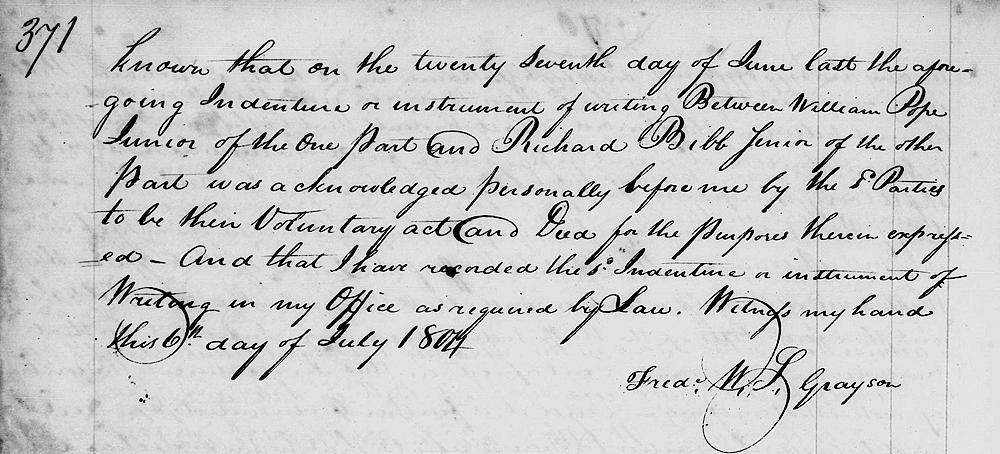 371
Known that on the twenty Seventh day of June last the afore=
=going Indenture or instrument of writing Between William Pope
Junior of the One Part and Richard Bibb Senior of the other
Part was acknowledged personally before me by the sd. Parties
to be their Voluntary act and Deed for the purposes therein express=
=ed - And that I have recorded the sd. Indenture or instrument of
Writing in my Office as required by Law. Witness my hand
this 6th day of July 1804
Fredc. W. S. Grayson